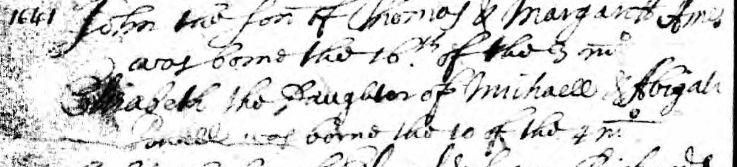 1641 John the son of Thomas & Margarett Ames
was borne the 16th of the 3 mo
Elizabeth the Daughter of Michaell & Abigail
Powell was borne the 10 of the 4 mo